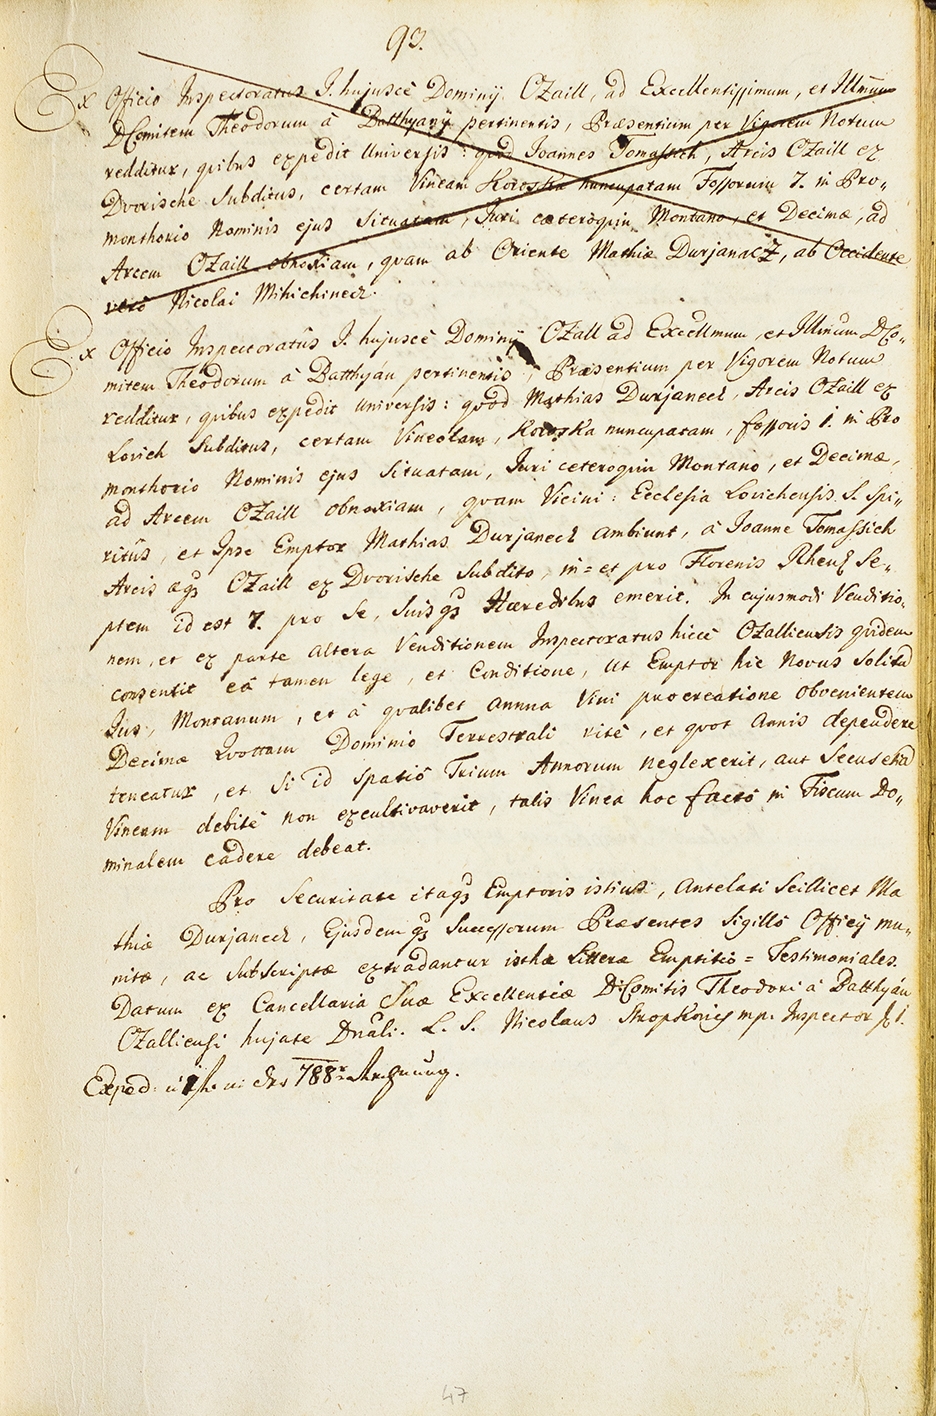 93.
Ex Officio Inspectoratus I. hujusce Dominij Ozaill, ad Excellentissimum, et Illmum
D Comitem Theodorum à Batthyany pertinentis, Præsentium per Vigorem Notum
redditur, quibus expedit Universis: quod Joannes Tomassich, Arcis Ozaill ex
Dvorische Subditus, certam Vineam Koroska nuncupatam Fossorum 7. in Pro„
monthorio Nominis ejus Situatam, Juri cæteroquin Montano, et Decimæ, ad
Arcem Ozaill obnoxiam, quam ab Oriente Mathiæ Durjanacz, ab Occidente
verò Nicolai Mihichinecz.
Ex Officio Inspectoratûs I. hujusce Dominij Ozall ad Excellmum, et Illmum D Co„
mitem Theodorum à Batthyan pertinentis, Præsentium per Vigorem Notum
redditur, quibus expedit universis: quod Mathias Durjanecz, Arcis Ozaill ex
Lovich Subditus, certam Vineolam, Koroska nuncupatam, fossoris 1. in Pro
monthorio Nominis ejus Situatam, Juri ceteroquin Montano, et Decimæ,
ad Arcem Ozaill obnoxiam, quam Vicini: Ecclesia Lovichensis S. Spi„
ritûs, et Ipse Emptor Mathias Durjanecz ambiunt, à Joanne Tomassich
Arcis æq3 Ozaill ex Dvorische Subdito, in= et pro Florenis Rhen Se„
ptem id est 7. pro Se, Suisq3 Hæredibus emerit. In cujusmodi Venditio„
nem, et ex parte altera Venditionem Inspectoratus hicce Ozalliensis quidem
consentit eâ tamen lege, et Conditione, Ut Emptor hic Novus Solitum
Jus, Montanum, et à qualibet annua Vini procreatione obvenientem
Decimæ Quottam Dominio Terrestrali ritè, et quot Annis dependere
teneatur, et Si id Spatiô Trium Annorum neglexerit, aut Secus etiam
Vineam debitè non excultivaverit, talis Vinea hoc facto in Fiscum Do„
minalem cadere debeat.
Pro Securitate itaq3 Emptoris istius, Antelati Scillicet Ma
thiæ Durjanecz, Ejusdemq3 Successorum Præsentes Sigillô Officij mu„
nitæ, ac Subscriptæ extradantur isthæ Litteræ Emptitiô = Testimoniales.
Datum ex Cancellaria Suæ Excellentiæ D Comitis Theodori à Batthyán
Ozalliensi hujate Dnâli. L. S. Nicolaus mp. Inspector
Exped: 788
47